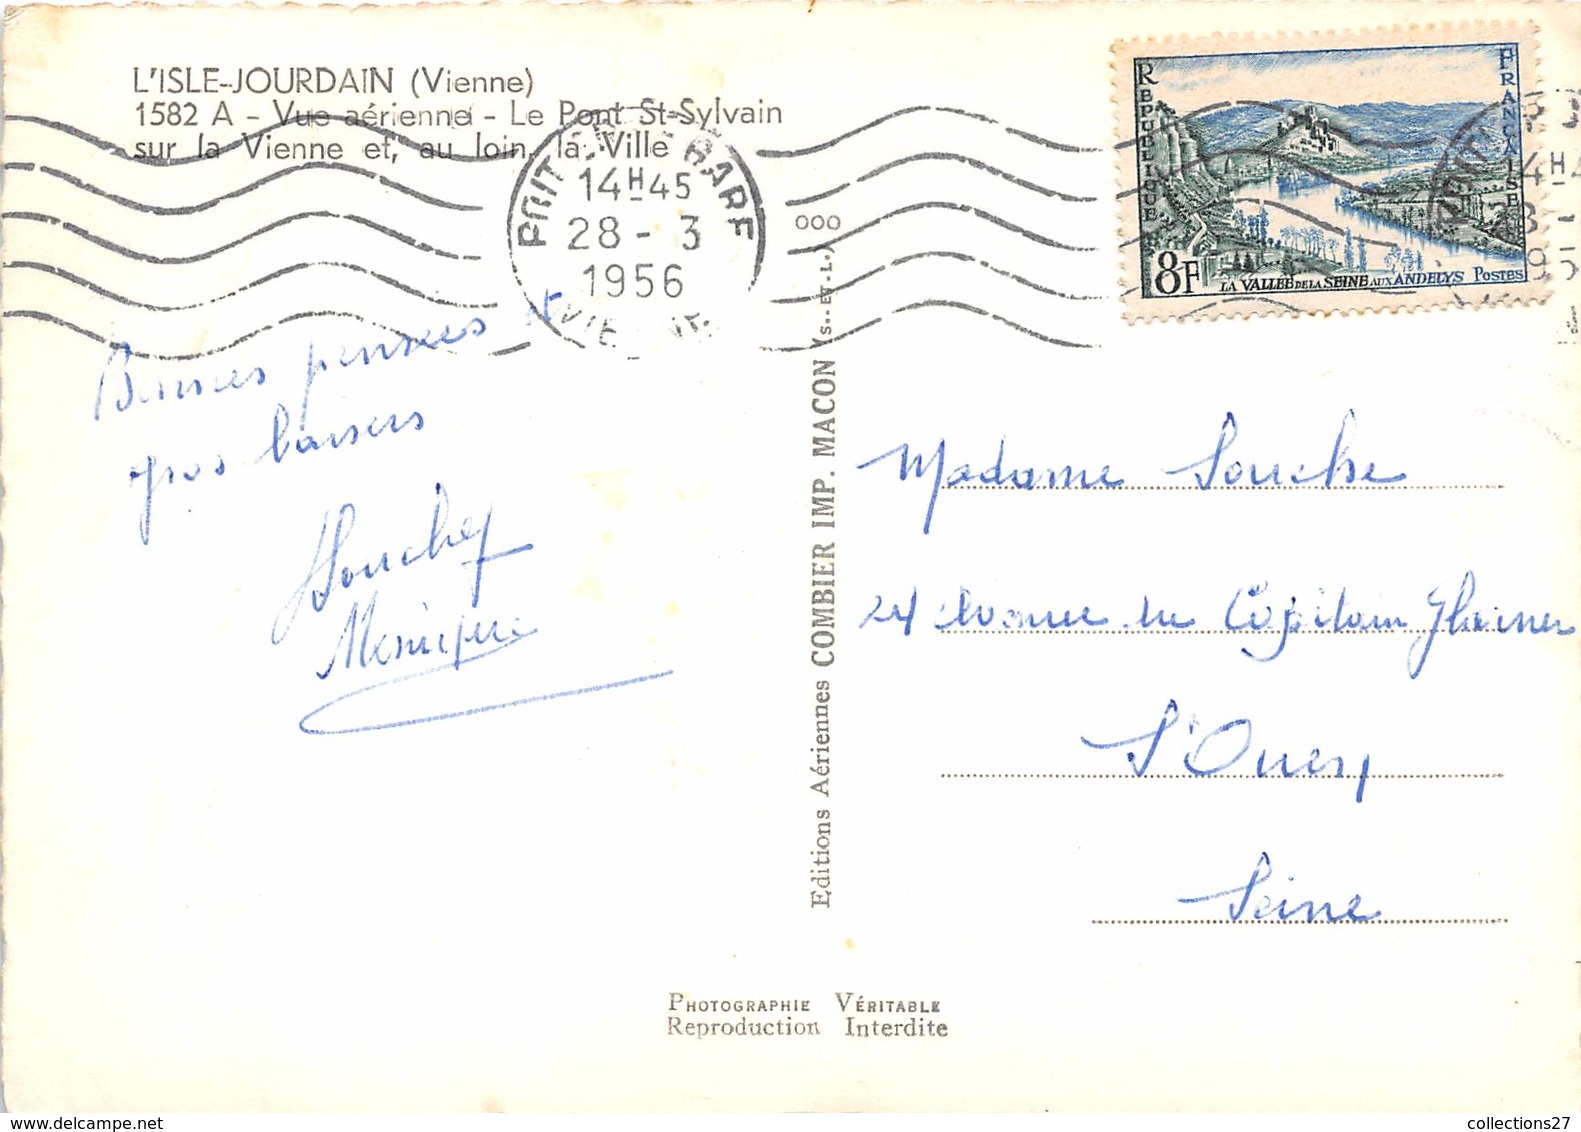 L'ISLE-JOURDAIN (Vienne)
1582 A - Vue aérienne - Le Pont St-Sylvain
sur la Vienne et, au loin, la Ville
14H45
28 - 3
1956
VIENNE
000
RÉPUBLIQUE
FRANÇAISE
8F
LA VALLÉE DE LA SEINE AUX ANDELYS POSTES
Bonnes pensées et
gros baisers
Souche
Monique
Editions Aériennes COMBIER IMP. MACON (S.-ET-L.)
Madame Souche
24 Avenue du Capitaine Glarner
St Ouen
Seine
PHOTOGRAPHIE VÉRITABLE
Reproduction Interdite
collections27